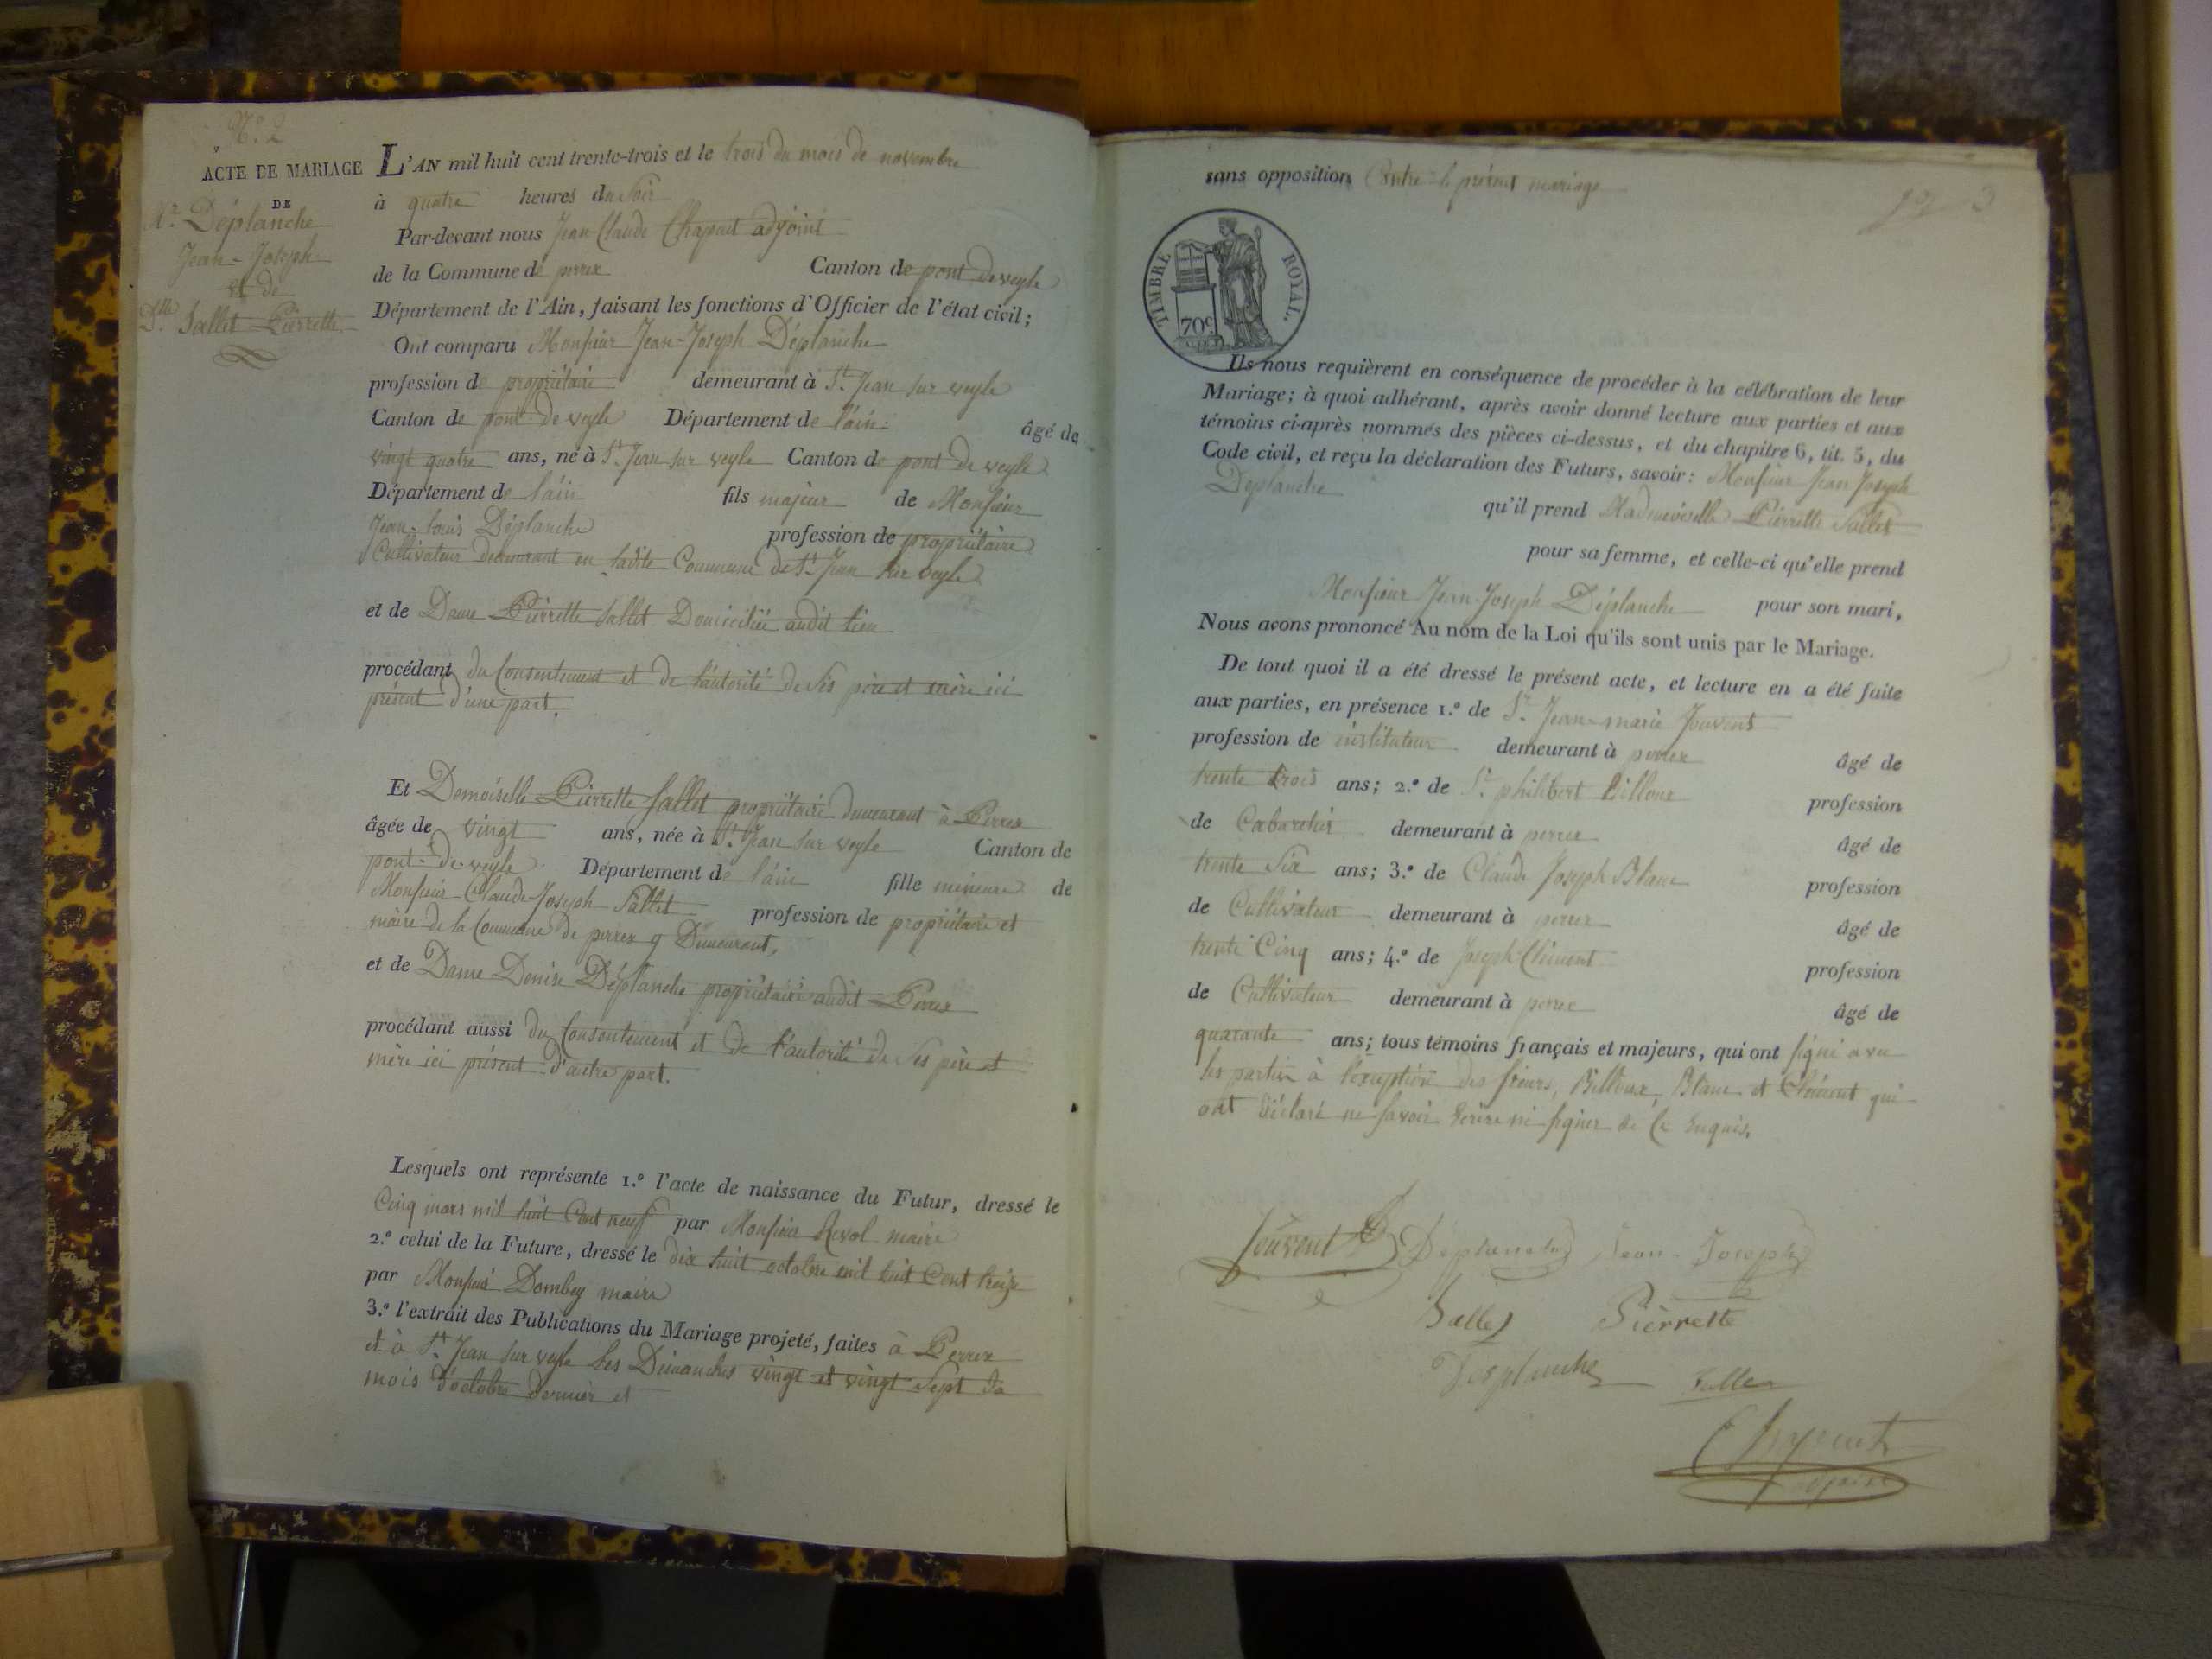 N.º 2
ACTE DE MARIAGE
DE
Mr. Déplanche
Jean-Joseph
et de
Dlle. Sallet Pierrette
L'AN mil huit cent trente-trois et le trois du mois de novembre
à quatre heures du soir
Par-devant nous Jean Claude Chapuit adjoint
de la Commune de perrex Canton de pont de veyle
Département de l'Ain, faisant les fonctions d'Officier de l'état civil;
Ont comparu Monsieur Jean-Joseph Déplanche
profession de propriétaire demeurant à St. Jean sur veyle
Canton de pont de veyle Département de l'ain âgé de
vingt quatre ans, né à St. Jean sur veyle Canton de pont de veyle
Département de l'ain fils majeur de Monsieur
Jean-Louis Déplanche profession de propriétaire
Cultivateur demeurant en ladite Commune de St. Jean sur veyle
et de Dame Pierrette Sallet Domiciliée audit lieu
procédant du Consentement et de l'autorité de ses père et mère ici
présent d'une part.
Et Demoiselle Pierrette Sallet propriétaire demeurant à Perrex
âgée de vingt ans, née à St. Jean sur veyle Canton de
pont-de-veyle Département de l'ain fille mineure de
Monsieur Claude-Joseph Sallet profession de propriétaire et
maire de la Commune de perrex y Demeurant,
et de Dame Denise Déplanche propriétaire audit Perrex
procédant aussi du Consentement et de l'autorité de ses père et
mère ici présent d'autre part.
Lesquels ont représente 1.º l'acte de naissance du Futur, dressé le
Cinq mars mil huit Cent neuf par Monsieur Revol maire
2.º celui de la Future, dressé le dix huit octobre mil huit Cent treize
par Monsieur Dombey maire
3.º l'extrait des Publications du Mariage projeté, faites à Perrex
et à St. Jean sur veyle les Dimanches vingt et vingt sept du
mois d'octobre dernier et
sans opposition Contre le présent mariage
TIMBRE ROYAL.
70c
Ils nous requièrent en conséquence de procéder à la célébration de leur
Mariage; à quoi adhérant, après avoir donné lecture aux parties et aux
témoins ci-après nommés des pièces ci-dessus, et du chapitre 6, tit. 5, du
Code civil, et reçu la déclaration des Futurs, savoir: Monsieur Jean Joseph
Déplanche qu'il prend Mademoiselle Pierrette Sallet
pour sa femme, et celle-ci qu'elle prend
Monsieur Jean-Joseph Déplanche pour son mari,
Nous avons prononcé Au nom de la Loi qu'ils sont unis par le Mariage.
De tout quoi il a été dressé le présent acte, et lecture en a été faite
aux parties, en présence 1.º de Sr. Jean-marie Jouvent
profession de instituteur demeurant à perrex âgé de
trente trois ans; 2.º de Sr. philibert Billoux profession
de Cabaretier demeurant à perrex âgé de
trente Six ans; 3.º de Claude Joseph Blanc profession
de Cultivateur demeurant à perrex âgé de
trente Cinq ans; 4.º de Joseph Clément profession
de Cultivateur demeurant à perrex âgé de
quarante ans; tous témoins français et majeurs, qui ont signé avec
les parties à l'exception des sieurs, Billoux, Blanc et Clément qui
ont déclaré ne savoir Ecrire ni signer de Ce Enquis.
Jouvent Déplanche Jean-Joseph
Sallet Pierrette
Desplanche Sallet
Chapuit
adjoint